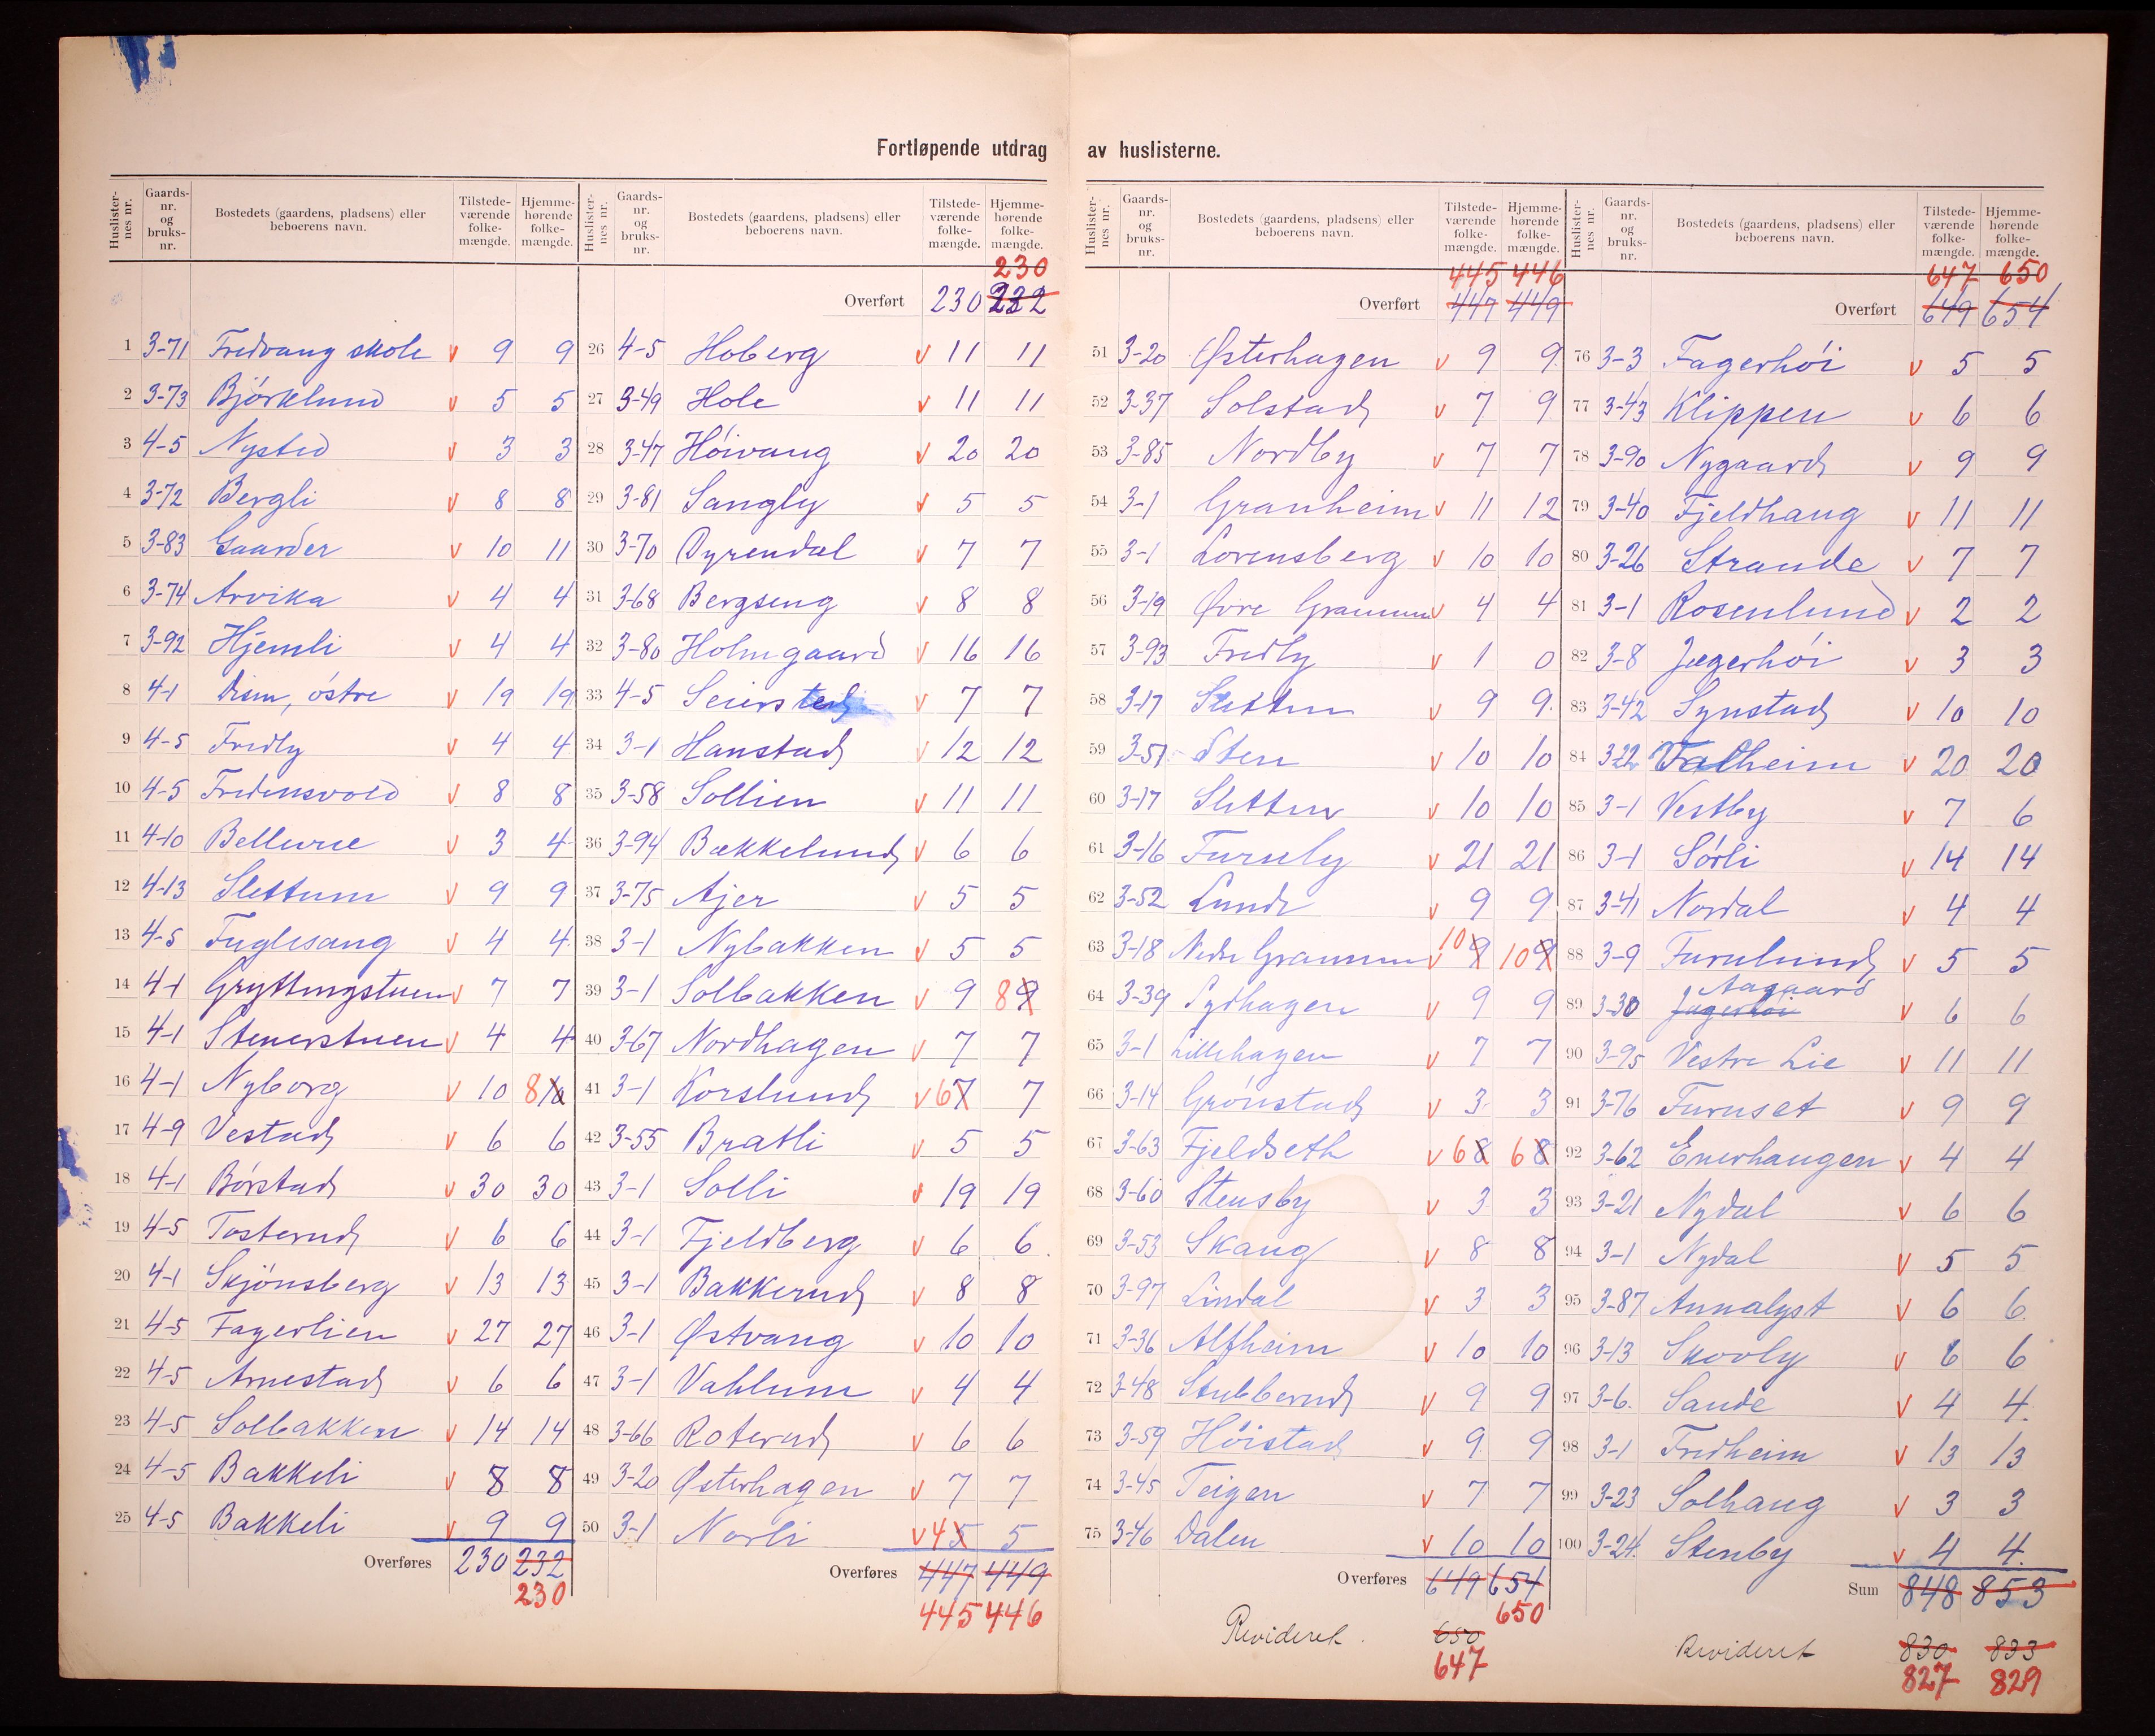 Fortløpende utdrag av huslisterne.
Huslister-nes nr. Gaards-nr. og bruks-nr. Bostedets (gaardens, pladsens) eller beboerens navn. Tilstede-værende folke-mængde. Hjemme-hørende folke-mængde.
1 3-71 Fredvang skole v 9 9
2 3-73 Björklund v 5 5
3 4-5 Nysted v 3 3
4 3-72 Bergli v 8 8
5 3-83 Gaarder v 10 11
6 3-74 Arvika v 4 4
7 3-92 Hjemli v 4 4
8 4-1 Disen, østre v 19 19
9 4-5 Fredly v 4 4
10 4-5 Fredensvold v 8 8
11 4-10 Bellevue v 3 4
12 4-13 Slettum v 9 9
13 4-5 Fuglesang v 4 4
14 4-1 Gryttingstuen v 7 7
15 4-1 Stenerstuen v 4 4
16 4-1 Nyborg v 10 8 10
17 4-9 Vestad v 6 6
18 4-1 Börstad v 30 30
19 4-5 Tosterud v 6 6
20 4-1 Skjönsberg v 13 13
21 4-5 Fagerlien v 27 27
22 4-5 Arnestad v 6 6
23 4-5 Solbakken v 14 14
24 4-5 Bakkeli v 8 8
25 4-5 Bakkeli v 9 9
Overføres 230 232
230
Huslister-nes nr. Gaards-nr. og bruks-nr. Bostedets (gaardens, pladsens) eller beboerens navn. Tilstede-værende folke-mængde. Hjemme-hørende folke-mængde.
230
Overført 230 232
26 4-5 Hoberg v 11 11
27 3-49 Hole v 11 11
28 3-47 Höivang v 20 20
29 3-81 Sangly v 5 5
30 3-70 Dyrendal v 7 7
31 3-68 Bergseng v 8 8
32 3-80 Holmgaard v 16 16
33 4-5 Seiersted v 7 7
34 3-1 Hanstad v 12 12
35 3-58 Sollien v 11 11
36 3-94 Bækkelund v 6 6
37 3-75 Ajer v 5 5
38 3-1 Nybakken v 5 5
39 3-1 Solbakken v 9 8 9
40 3-67 Nordhagen v 7 7
41 3-1 Korslund v 6 7 7
42 3-55 Bratli v 5 5
43 3-1 Solli v 19 19
44 3-1 Fjeldberg v 6 6
45 3-1 Bakkerud v 8 8
46 3-1 Østvang v 10 10
47 3-1 Vahlum v 4 4
48 3-66 Roterud v 6 6
49 3-20 Østerhagen v 7 7
50 3-1 Norli v 4 5 5
Overføres 447 449
445 446
Huslister-nes nr. Gaards-nr. og bruks-nr. Bostedets (gaardens, pladsens) eller beboerens navn. Tilstede-værende folke-mængde. Hjemme-hørende folke-mængde.
445 446
Overført 447 449
51 3-20 Østerhagen v 9 9
52 3-37 Solstad v 7 9
53 3-85 Nordby v 7 7
54 3-1 Granheim v 11 12
55 3-1 Lorensberg v 10 10
56 3-19 Øvre Grammen v 4 4
57 3-93 Fredly v 1 0
58 3-17 Sletten v 9 9
59 3-51 Sten v 10 10
60 3-17 Sletten v 10 10
61 3-16 Furuly v 21 21
62 3-52 Lund v 9 9
63 3-18 Nedre Grammen v 10 9 10 9
64 3-39 Sydhagen v 9 9
65 3-1 Lillehagen v 7 7
66 3-14 Grönstad v 3 3
67 3-63 Fjeldseth v 6 8 6 8
68 3-60 Stensby v 3 3
69 3-53 Skaug v 8 8
70 3-97 Lindal v 3 3
71 3-36 Alfheim v 10 10
72 3-48 Stubberud v 9 9
73 3-59 Höistad v 9 9
74 3-45 Teigen v 7 7
75 3-46 Dalen v 10 10
Overføres 649 654
650
Revideret. 650
647
Huslister-nes nr. Gaards-nr. og bruks-nr. Bostedets (gaardens, pladsens) eller beboerens navn. Tilstede-værende folke-mængde. Hjemme-hørende folke-mængde.
647 650
Overført 649 654
76 3-3 Fagerhöi v 5 5
77 3-43 Klippen v 6 6
78 3-90 Nygaard v 9 9
79 3-40 Fjeldhaug v 11 11
80 3-26 Strande v 7 7
81 3-1 Rosenlund v 2 2
82 3-8 Jægerhöi v 3 3
83 3-42 Synstad v 10 10
84 3-22 Valheim v 20 20
85 3-1 Vestby v 7 6
86 3-1 Sörli v 14 14
87 3-41 Nordal v 4 4
88 3-9 Furulund v 5 5
Aagaard
89 3-30 Jægerhöi v 6 6
90 3-95 Vestre Lie v 11 11
91 3-76 Furuset v 9 9
92 3-62 Enerhaugen v 4 4
93 3-21 Nydal v 6 6
94 3-1 Nydal v 5 5
95 3-87 Annalyst v 6 6
96 3-13 Skovly v 6 6
97 3-6 Sande v 4 4
98 3-1 Fredheim v 13 13
99 3-23 Solhaug v 3 3
100 3-24 Stenby v 4 4
Sum 848 853
Revideret 830 833
827 829